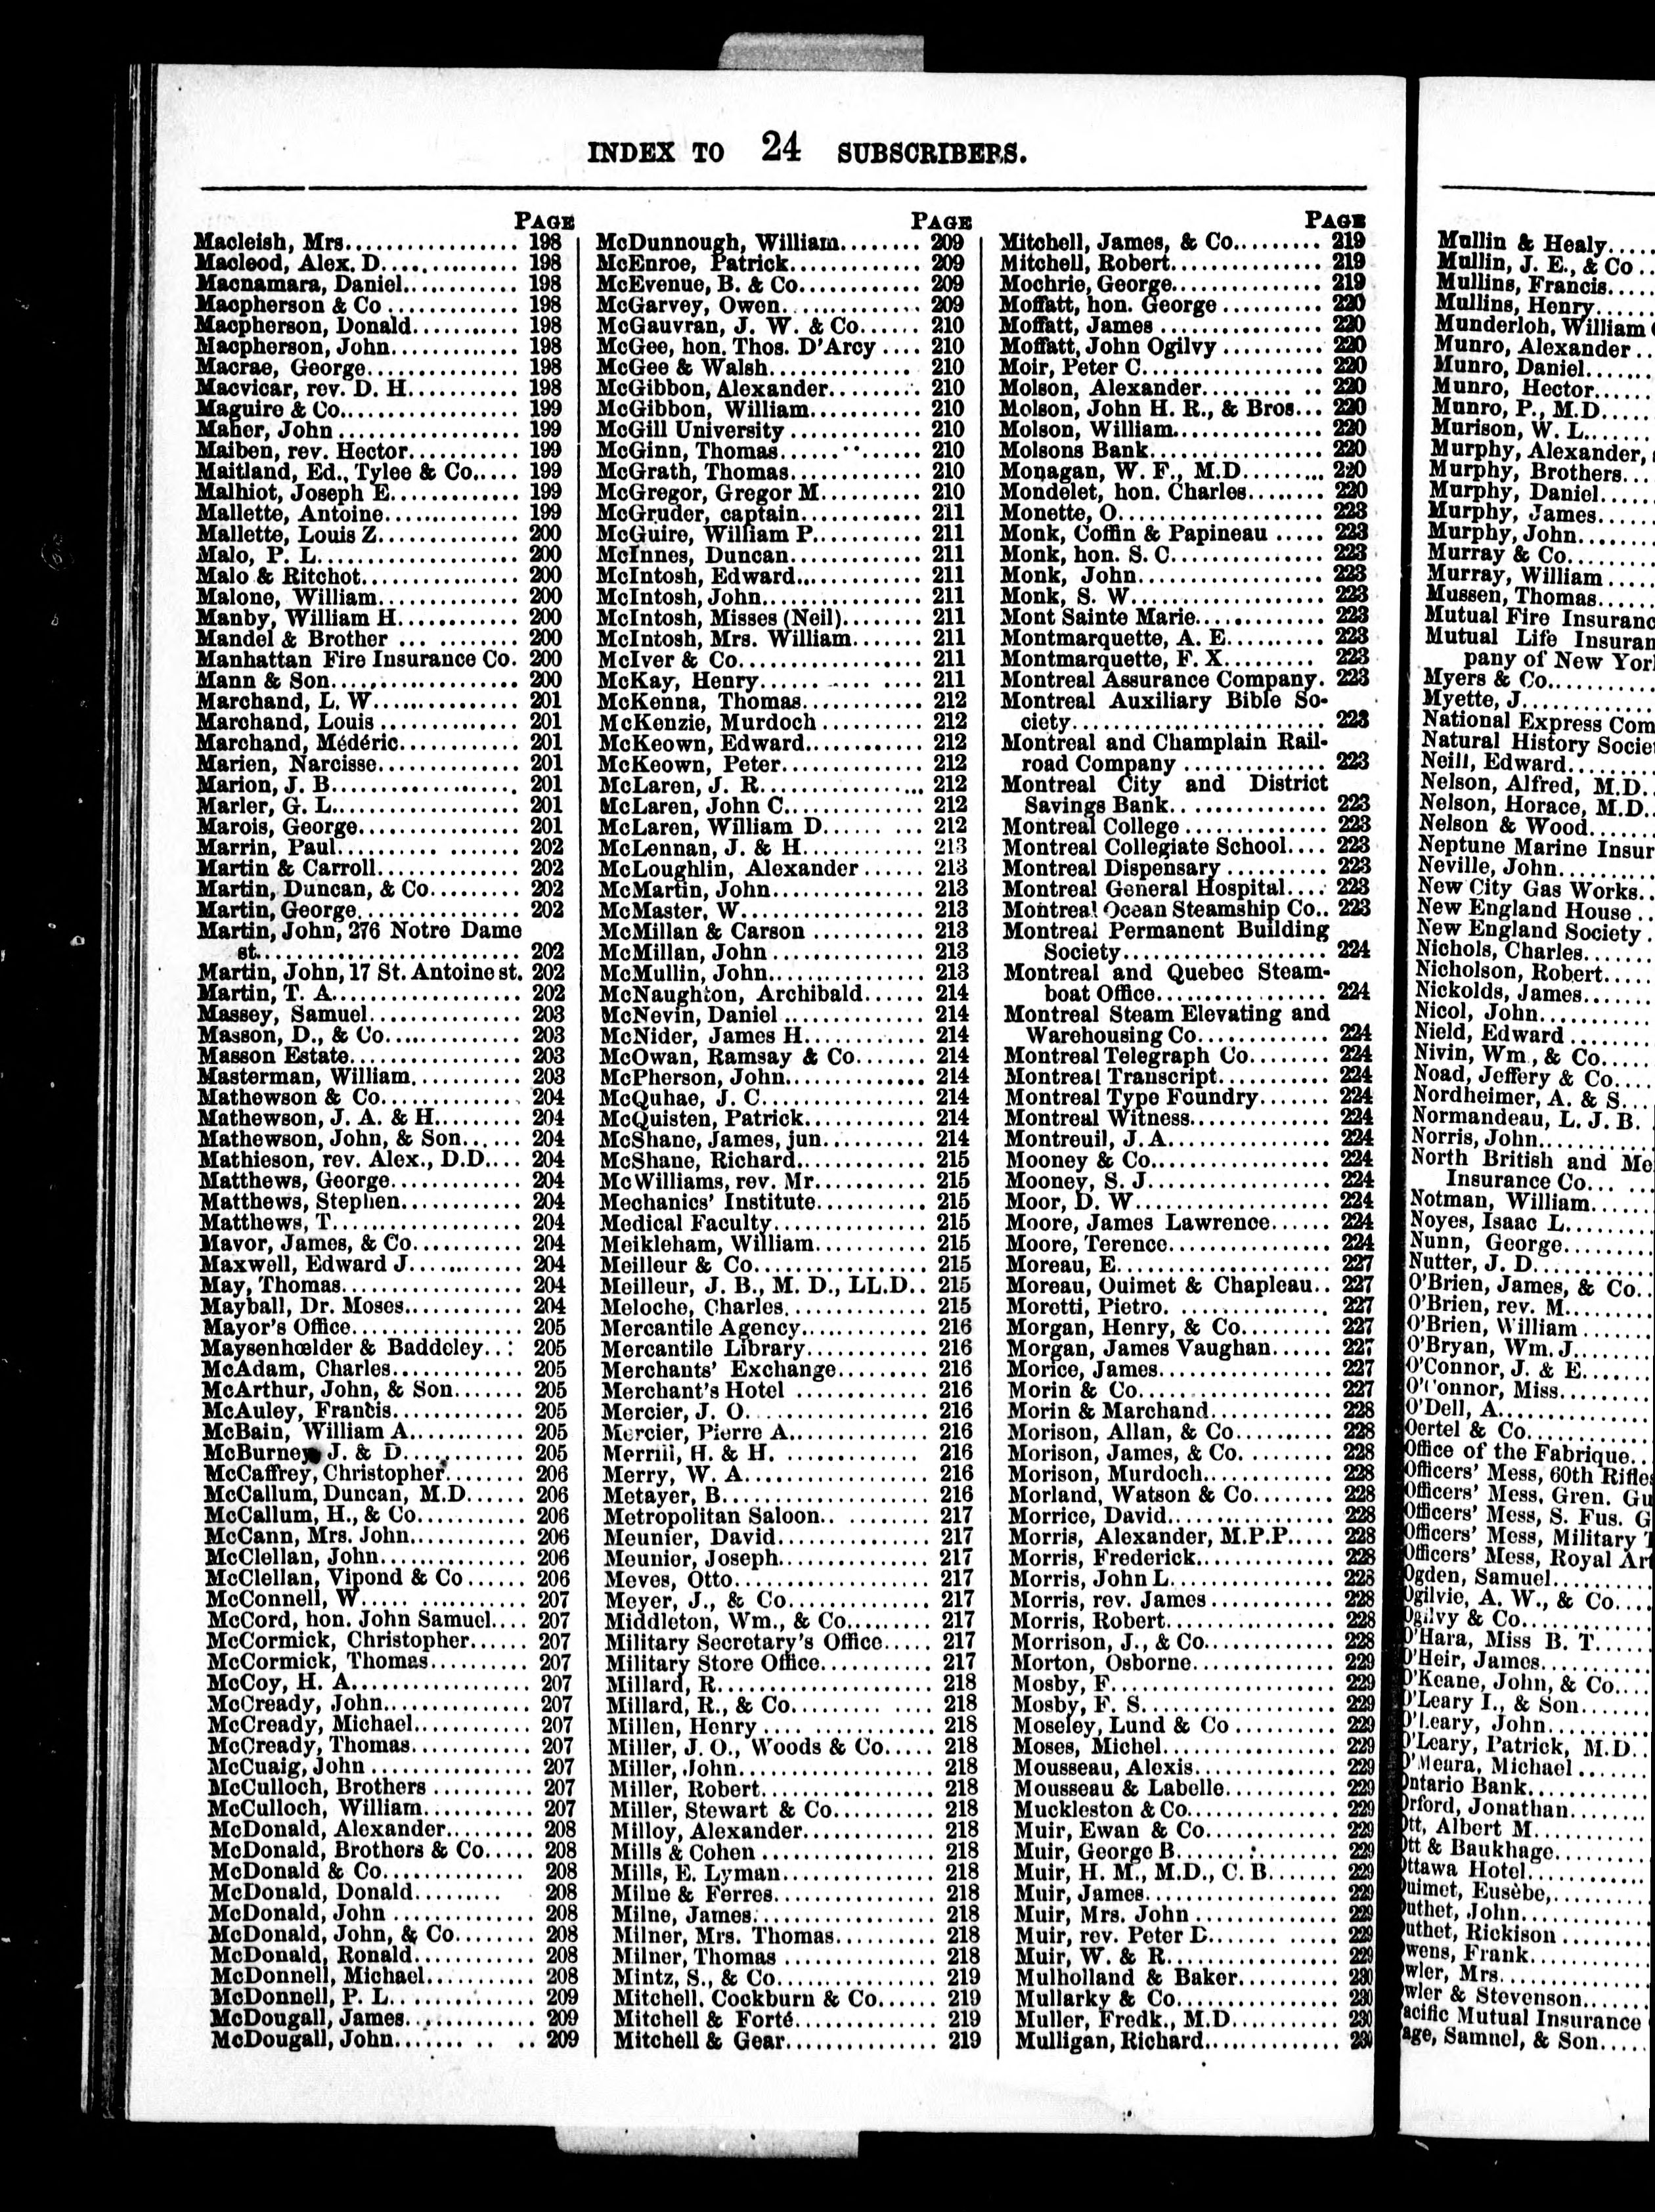 INDEX TO 24 SUBSCRIBERS.
PAGE
Macleish, Mrs................. 198
Macleod, Alex. D.............. 198
Macnamara, Daniel........... 198
Macpherson & Co ............. 198
Macpherson, Donald.......... 198
Macpherson, John............. 198
Macrae, George............... 198
Macvicar, rev. D. H........... 198
Maguire & Co.................. 199
Maher, John .................. 199
Maiben, rev. Hector........... 199
Maitland, Ed., Tylee & Co..... 199
Malhiot, Joseph E............. 199
Mallette, Antoine.............. 199
Mallette, Louis Z.............. 200
Malo, P. L.................... 200
Malo & Ritchot................ 200
Malone, William............... 200
Manby, William H............ 200
Mandel & Brother ... ......... 200
Manhattan Fire Insurance Co. 200
Mann & Son.................. 200
Marchand, L. W............... 201
Marchand, Louis .............. 201
Marchand, Médéric............ 201
Marien, Narcisse.............. 201
Marion, J. B.................. 201
Marler, G. L................... 201
Marois, George................ 201
Marrin, Paul.......... ....... 202
Martin & Carroll.............. 202
Martin, Duncan, & Co......... 202
Martin, George................ 202
Martin, John, 276 Notre Dame
st......................... 202
Martin, John, 17 St. Antoine st. 202
Martin, T. A................... 202
Massey, Samuel............... 203
Masson, D., & Co............. 203
Masson Estate................. 203
Masterman, William........... 203
Mathewson & Co.............. 204
Mathewson, J. A. & H......... 204
Mathewson, John, & Son...... 204
Mathieson, rev. Alex., D.D.... 204
Matthews, George............. 204
Matthews, Stephen............ 204
Matthews, T................... 204
Mavor, James, & Co........... 204
Maxwell, Edward J........... 204
May, Thomas.................. 204
Mayball, Dr. Moses........... 204
Mayor's Office................. 205
Maysenhœlder & Baddeley..: 205
McAdam, Charles............. 205
McArthur, John, & Son....... 205
McAuley, Francis............. 205
McBain, William A........... 205
McBurney J. & D............ 205
McCaffrey, Christopher........ 206
McCallum, Duncan, M.D...... 206
McCallum, H., & Co.......... 206
McCann, Mrs. John........... 206
McClellan, John.............. 206
McClellan, Vipond & Co ...... 206
McConnell, W..... ........... 207
McCord, hon. John Samuel.... 207
McCormick, Christopher...... 207
McCormick, Thomas.......... 207
McCoy, H. A................. 207
McCready, John.............. 207
McCready, Michael........... 207
McCready, Thomas........... 207
McCuaig, John ............... 207
McCulloch, Brothers .......... 207
McCulloch, William........... 207
McDonald, Alexander......... 208
McDonald, Brothers & Co..... 208
McDonald & Co.............. 208
McDonald, Donald......... 208
McDonald, John .............. 208
McDonald, John, & Co........ 208
McDonald, Ronald............ 208
McDonnell, Michael........... 208
McDonnell, P. L.............. 209
McDougall, James............. 209
McDougall, John....... .. .. 209
PAGE
McDunnough, William........ 209
McEnroe, Patrick............. 209
McEvenue, B. & Co............ 209
McGarvey, Owen.............. 209
McGauvran, J. W. & Co...... 210
McGee, hon. Thos. D'Arcy .... 210
McGee & Walsh.............. 210
McGibbon, Alexander......... 210
McGibbon, William........... 210
McGill University ............. 210
McGinn, Thomas.............. 210
McGrath, Thomas............. 210
McGregor, Gregor M.......... 210
McGruder, captain............ 211
McGuire, William P........... 211
McInnes, Duncan............. 211
McIntosh, Edward............ 211
McIntosh, John............... 211
McIntosh, Misses (Neil)........ 211
McIntosh, Mrs. William....... 211
McIver & Co.................. 211
McKay, Henry...... .... .... 211
McKenna, Thomas............ 212
McKenzie, Murdoch .......... 212
McKeown, Edward........... 212
McKeown, Peter.............. 212
McLaren, J. R................ 212
McLaren, John C............. 212
McLaren, William D...... ... 212
McLennan, J. & H............ 213
McLoughlin, Alexander ...... 213
McMartin, John............... 213
McMaster, W.................. 213
McMillan & Carson ........... 213
McMillan, John ............... 213
McMullin, John............... 213
McNaughton, Archibald...... 214
McNevin, Daniel .............. 214
McNider, James H............ 214
McOwan, Ramsay & Co....... 214
McPherson, John.............. 214
McQuhae, J. C................ 214
McQuisten, Patrick............ 214
McShane, James, jun.......... 214
McShane, Richard............. 215
McWilliams, rev. Mr........... 215
Mechanics' Institute........... 215
Medical Faculty............... 215
Meikleham, William........... 215
Meilleur & Co................. 215
Meilleur, J. B., M. D., LL.D.. 215
Meloche, Charles.............. 215
Mercantile Agency............. 216
Mercantile Library............ 216
Merchants' Exchange......... 216
Merchant's Hotel ............. 216
Mercier, J. O.................. 216
Mercier, Pierre A............. 216
Merrill, H. & H. ............. 216
Merry, W. A.................. 216
Metayer, B.................... 216
Metropolitan Saloon.. ........ 217
Meunier, David............... 217
Meunier, Joseph............... 217
Meves, Otto................... 217
Meyer, J., & Co.............. 217
Middleton, Wm., & Co........ 217
Military Secretary's Office..... 217
Military Store Office........... 217
Millard, R..................... 218
Millard, R., & Co......... .... 218
Millen, Henry ................. 218
Miller, J. O., Woods & Co..... 218
Miller, John................... 218
Miller, Robert................. 218
Miller, Stewart & Co.......... 218
Milloy, Alexander............. 218
Mills & Cohen ................. 218
Mills, E. Lyman............... 218
Milne & Ferres................ 218
Milne, James.................. 218
Milner, Mrs. Thomas.......... 218
Milner, Thomas ............... 218
Mintz, S., & Co............... 219
Mitchell, Cockburn & Co...... 219
Mitchell & Forté.............. 219
Mitchell & Gear............... 219
PAGE
Mitchell, James, & Co......... 219
Mitchell, Robert............... 219
Mochrie, George............... 219
Moffatt, hon. George .......... 220
Moffatt, James ................ 220
Moffatt, John Ogilvy .......... 220
Moir, Peter C.................. 220
Molson, Alexander......... .. 220
Molson, John H. R., & Bros... 220
Molson, William............... 220
Molsons Bank................. 220
Monagan, W. F., M.D......... 220
Mondelet, hon. Charles........ 220
Monette, O.................... 223
Monk, Coffin & Papineau ..... 223
Monk, hon. S. C............... 223
Monk, John................... 223
Monk, S. W................... 223
Mont Sainte Marie............. 223
Montmarquette, A. E.......... 223
Montmarquette, F. X......... 223
Montreal Assurance Company. 223
Montreal Auxiliary Bible So-
ciety........................ 223
Montreal and Champlain Rail-
road Company .............. 223
Montreal City and District
Savings Bank............... 223
Montreal College .............. 223
Montreal Collegiate School.... 223
Montreal Dispensary .......... 223
Montreal General Hospital.... 223
Montreal Ocean Steamship Co.. 223
Montreal Permanent Building
Society.................... 224
Montreal and Quebec Steam-
boat Office................. 224
Montreal Steam Elevating and
Warehousing Co............. 224
Montreal Telegraph Co........ 224
Montreal Transcript........... 224
Montreal Type Foundry....... 224
Montreal Witness.............. 224
Montreuil, J. A................ 224
Mooney & Co.................. 224
Mooney, S. J.................. 224
Moor, D. W................... 224
Moore, James Lawrence...... 224
Moore, Terence................ 224
Moreau, E..................... 227
Moreau, Ouimet & Chapleau.. 227
Moretti, Pietro................. 227
Morgan, Henry, & Co......... 227
Morgan, James Vaughan...... 227
Morice, James................. 227
Morin & Co................... 227
Morin & Marchand............ 228
Morison, Allan, & Co......... 228
Morison, James, & Co......... 228
Morison, Murdoch............. 228
Morland, Watson & Co........ 228
Morrice, David................ 228
Morris, Alexander, M.P.P..... 228
Morris, Frederick............. 228
Morris, John L................ 228
Morris, rev. James ............ 228
Morris, Robert................ 228
Morrison, J., & Co............ 228
Morton, Osborne.............. 229
Mosby, F...................... 229
Mosby, F. S................... 229
Moseley, Lund & Co .......... 229
Moses, Michel................. 229
Mousseau, Alexis.............. 229
Mousseau & Labelle........... 229
Muckleston & Co............... 229
Muir, Ewan & Co............. 229
Muir, George B................ 229
Muir, H. M., M.D., C. B....... 229
Muir, James................... 229
Muir, Mrs. John............... 229
Muir, rev. Peter D....... ..... 229
Muir, W. & R................. 229
Mulholland & Baker.......... 230
Mullarky & Co................ 230
Muller, Fredk., M.D........... 230
Mulligan, Richard.............. 230
Mullin & Healy.....
Mullin, J. E., & Co ..
Mullins, Francis.....
Mullins, Henry......
Munderloh, William
Munro, Alexander ..
Munro, Daniel.......
Munro, Hector......
Munro, P., M.D.....
Murison, W. L.......
Murphy, Alexander,
Murphy, Brothers...
Murphy, Daniel.....
Murphy, James......
Murphy, John........
Murray & Co........
Murray, William .....
Mussen, Thomas......
Mutual Fire Insuranc
Mutual Life Insuran
pany of New Yor
Myers & Co...........
Myette, J.............
National Express Com
Natural History Socie
Neill, Edward.........
Nelson, Alfred, M.D..
Nelson, Horace, M.D..
Nelson & Wood.......
Neptune Marine Insur
Neville, John.........
New City Gas Works..
New England House ..
New England Society.
Nichols, Charles.......
Nicholson, Robert.....
Nickolds, James.......
Nicol, John............
Nield, Edward ........
Nivin, Wm., & Co.....
Noad, Jeffery & Co....
Nordheimer, A. & S...
Normandeau, L. J. B.
Norris, John...........
North British and Me
Insurance Co... ...
Notman, William......
Noyes, Isaac L........
Nunn, George.........
Nutter, J. D..........
O'Brien, James, & Co..
O'Brien, rev. M........
O'Brien, William ......
O'Bryan, Wm. J.......
O'Connor, J. & E......
O'Connor, Miss........
O'Dell, A..............
Oertel & Co...........
Office of the Fabrique..
Officers' Mess, 60th Rifles
Officers' Mess, Gren. Gu
Officers' Mess, S. Fus. G
Officers' Mess, Military T
Officers' Mess, Royal Art
Ogden, Samuel.........
Ogilvie, A. W., & Co....
Ogilvy & Co...........
O'Hara, Miss B. T.....
O'Heir, James..........
O'Keane, John, & Co....
O'Leary I., & Son......
O'Leary, John..........
O'Leary, Patrick, M.D..
O'Meara, Michael ......
Ontario Bank...........
Orford, Jonathan.......
Ott, Albert M...........
Ott & Baukhage........
Ottawa Hotel...........
uimet, Eusèbe,.........
uthet, John............
uthet, Rickison ........
wens, Frank...........
wler, Mrs..............
wler & Stevenson......
acific Mutual Insurance
age, Samuel, & Son.....